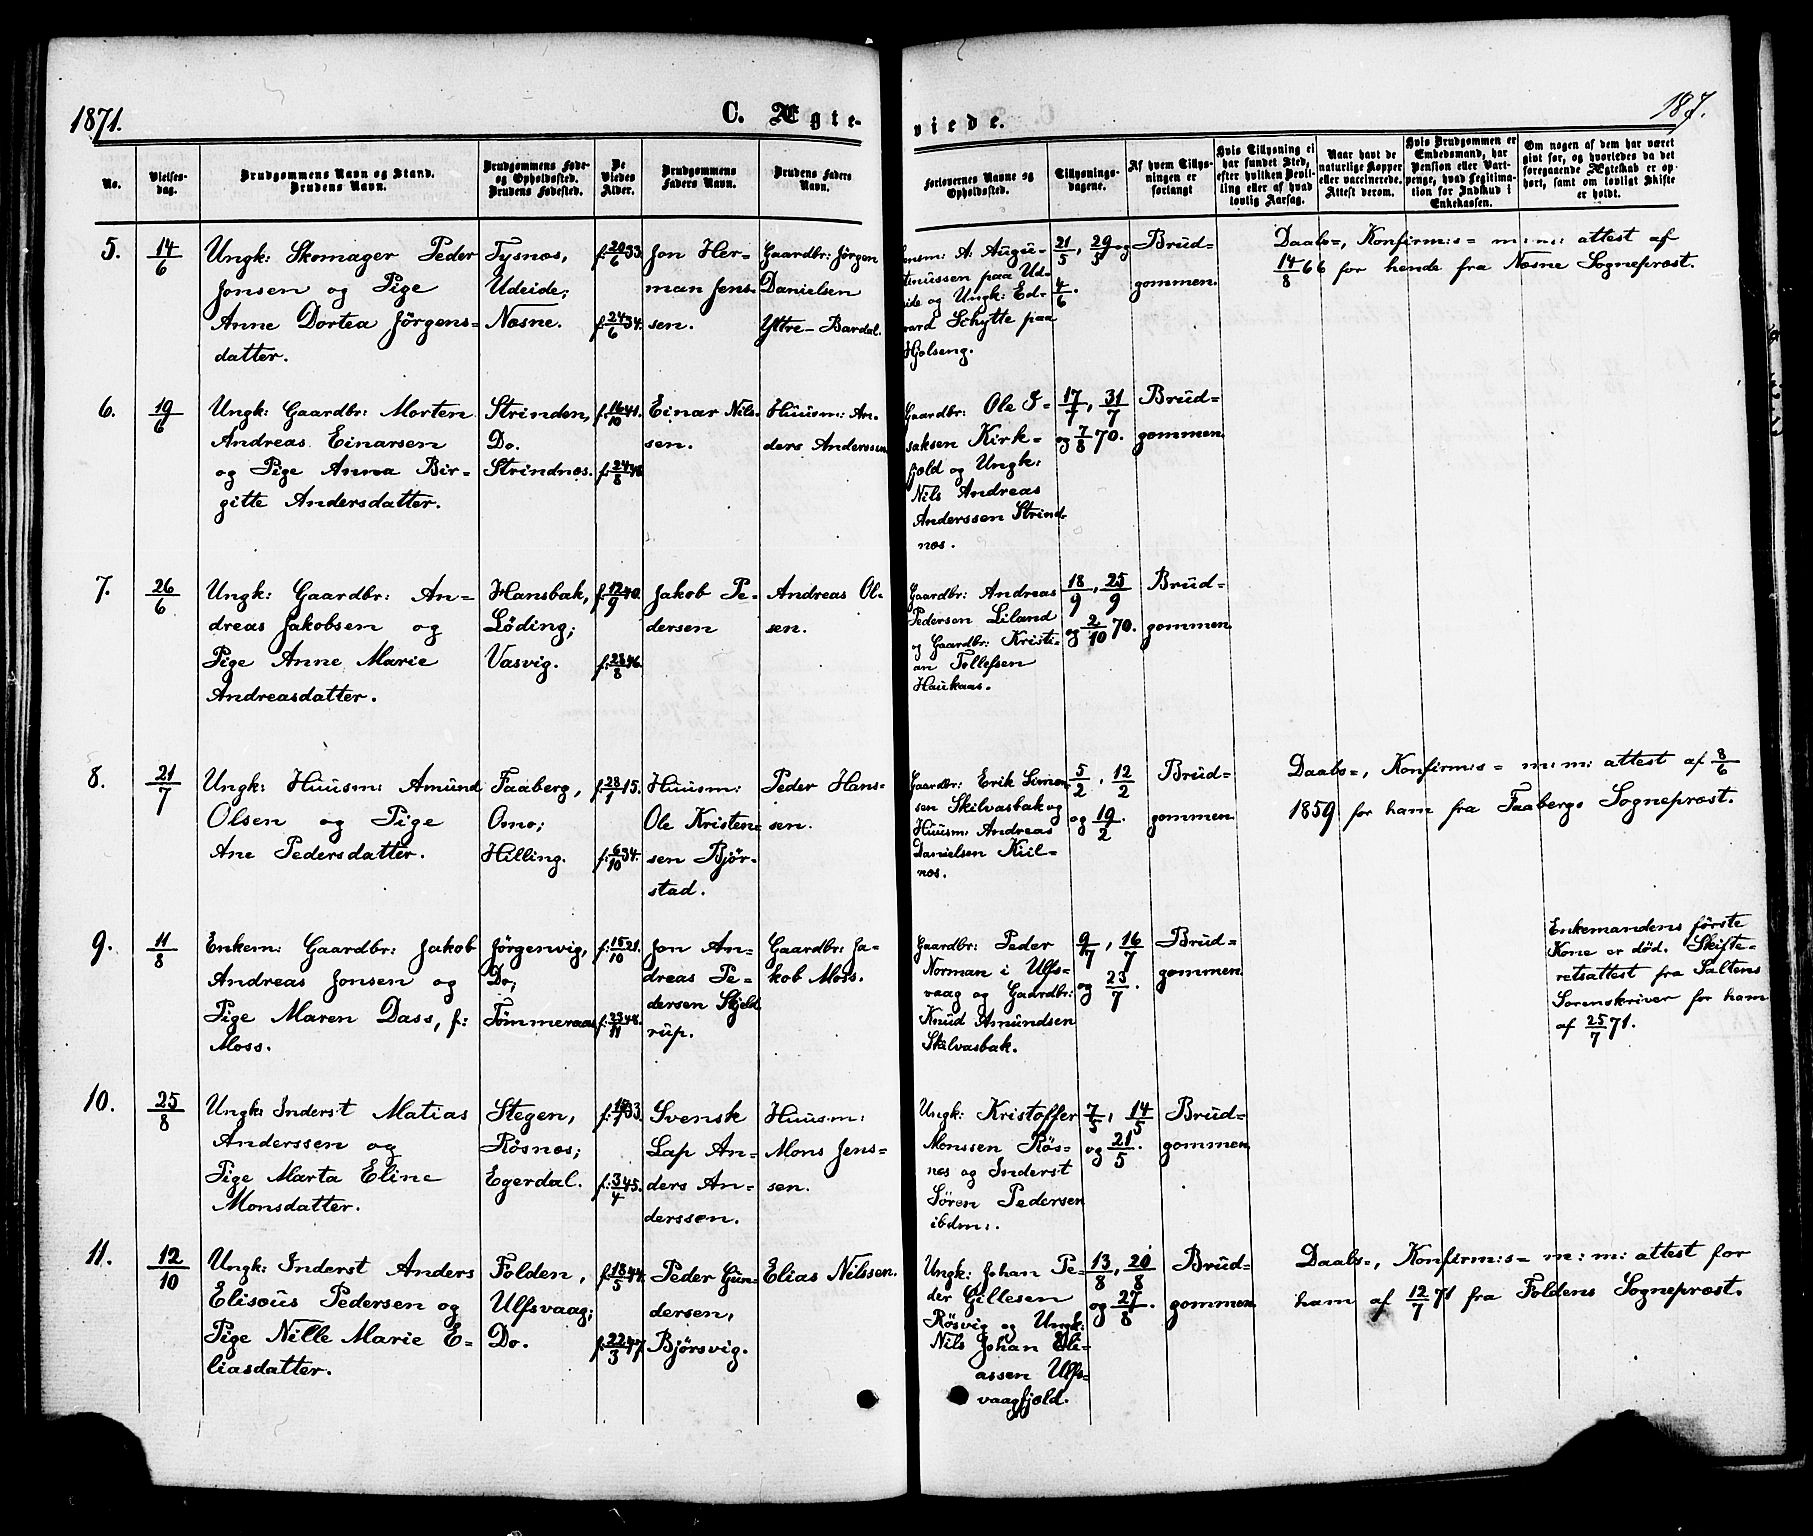 1871.
C. Ægte-
viede.
187.
No.
Vielses-
dag.
Brudgommens Navn og Stand.
Brudens Navn.
Brudgommens Føde-
og Opholdssted.
Brudens Fødested.
De
Viedes
Alder.
Brudgommens
Faders Navn.
Brudens Faders
Navn.
Forlovernes Navne og
Opholdssted.
Tillysnings-
dagene.
Af hvem Tillys-
ningen er
forlangt
Hvis Tillysning ei
har fundet Sted,
efter hvilken Bevil-
ling eller af hvad
lovlig Aarsag.
Naar havt de
naturlige Kopper
eller vaccinerede.
Attest derom.
Hvis Brudgommen er
Embedsmand, har
Pension eller Vart-
penge, hvad Legitima-
tion for Indskud i
Enkekassen.
Om nogen af dem har været
givt før, og hvorledes da det
foregaaende Ægteskab er op-
hørt, samt om lovligt Skifte
er holdt.
5.
14/6
Ungk: Skomager Peder
Jonsen og Pige
Anne Dortea Jörgens-
datter.
Tysnæs,
Udeide;
Næsne.
f: 20/6 33.
f: 24/6 34.
Jon Her-
man Jens-
sen.
Gaardbr: Jörgen
Danielsen
Yttre-Bardal.
Lensm: A. Augu-
stinussen paa Ud-
eide og Ungk: Ed-
vard Schytte paa
Hjolseng.
21/5, 29/5 og
4/6.
Brud-
gommen.
Daabs-, Konfirm:s- m:m: attest af
14/8 66 for hende fra Næsne Sognepræst.
6.
19/6
Ungk: Gaardbr: Morten
Andreas Einarsen
og Pige Anna Bir-
gitte Andersdatter.
Strinden,
Do.
Strindnæs.
f: 16/10 41.
f: 24/8 48.
Einar Nils-
sen.
Huusm: An-
ders Anderssen
Gaardbr: Ole I-
saksen Kirk-
fjeld og Ungk:
Nils Andreas
Anderssen Strind-
næs.
17/7, 31/7
og 7/8 70.
Brud-
gommen.
7.
26/6
Ungk: Gaardbr: An-
dreas Jakobsen og
Pige Anne Marie
Andreasdatter.
Hansbak,
Löding;
Vasvig.
f: 12/9 40.
f: 28/8 46.
Jakob Pe-
dersen
Andreas Ol-
sen.
Gaardbr: Andreas
Pedersen Liland
og Gaardbr: Kristi-
an Tollefsen
Haukaas.
18/9, 25/9
og 2/10 70.
Brud-
gommen.
8.
21/7
Ungk: Huusm: Amund
Olsen og Pige
Ane Pedersdatter.
Faaberg,
Omo;
Hilling.
f: 28/1 15.
f: 6/10 34.
Huusm:
Ole Kristen-
sen Björ-
stad.
Peder Hans-
sen.
Gaardbr: Erik Simon-
sen Skilvasbak og
Huusm: Andreas
Danielsen Kiil-
næs.
5/2, 12/2
og 19/2.
Brud-
gommen.
Daabs-, Konfirm:s- m:m: attest af 8/6
1859 for ham fra Faabergs Sognepræst.
9.
11/8
Enkem: Gaardbr: Jakob
Andreas Jonsen og
Pige Maren Dass, f:
Moss.
Jörgenvig,
Do;
Tömmeraas
f: 15/10 21.
f: 23/11 48.
Jon An-
dreas Pe-
dersen Skjeld-
rup.
Gaardbr: Ja-
kob Moss.
Gaardbr: Peder
Norman i Ulfs-
vaag og Gaardbr:
Knud Amundsen
Skilvasbak.
9/7, 16/7
og 23/7.
Brud-
gommen.
Enkemandens förste
Kone er död. Skifte-
retsattest fra Saltens
Sorenskriver for ham
af 25/7 71.
10.
25/8
Ungk: Inderst Matias
Anderssen og
Pige Marta Eline
Monsdatter.
Stegen,
Røsnæs;
Egerdal.
f: 3/4 45.
Svensk
Lap An-
ders An-
derssen.
Huusm:
Mons Jens-
sen.
Ungk: Kristoffer
Monssen Røs-
næs og Inderst
Sören Pedersen
ibdm:.
7/5, 14/5
og 21/5.
Brud-
gommen.
11.
12/10
Ungk: Inderst Anders
Elisæus Pedersen og
Pige Nille Marie E-
liasdatter.
Folden,
Ulfsvaag;
Do.
f: 18/5 44.
f: 22/3 47.
Peder Gun-
dersen,
Bjørsvig.
Elias Nilssen.
Ungk: Johan Pe-
der Gillesen
Røsvig og Ungk:
Nils Johan Eli-
assen Ulfs-
vaagfjeld.
13/8, 20/8
og 27/8.
Brud-
gommen.
Daabs-, Konfirm:s- m:m: attest for
ham af 12/7 71 fra Foldens Sognepræst.